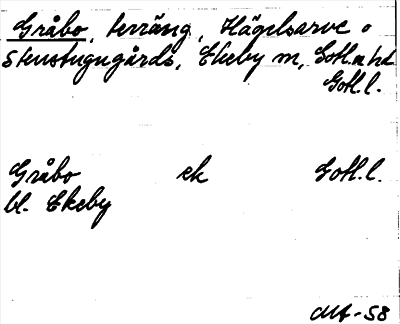 Gråbo, terräng, Hägelsarve o
Stenstugugårds, Ekeby m, Gotl. n hd
Gotl. l.
Gråbo ek Gotl. l.
bl. Ekeby
-58